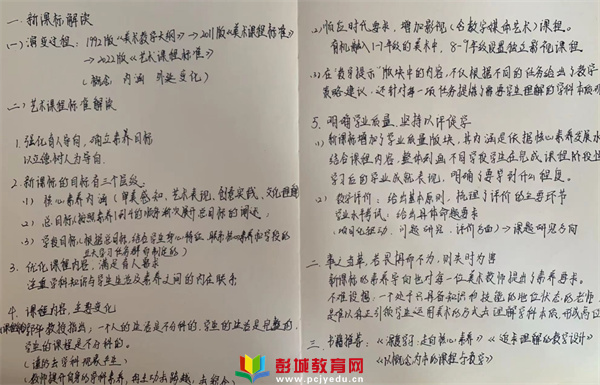 一. 新课标解读
(一) 演变过程: 1992版《美术教学大纲》→2011版《美术课程标准》
→2022版《艺术课程标准》
(概念 内涵 外延 变化)
二) 艺术课程标准解读
1. 强化育人导向, 确立素养目标
以立德树人为导向.
2. 新课标的目标有三个层级.
1) 核心素养内涵 (审美感知、艺术表现、创意实践、文化理解
2) 总目标 (按照素养1到4的顺序依次展开总目标的阐述)
3) 学段目标 (根据总目标, 结合学生身心特征, 联系核心素养和学段的
3. 优化课程内容, 满足育人要求
注重学科知识与学生生活及素养之间的内在联系
4. 课程内容, 主要变化
教授指出: 一个人的生活是不分科的, 学生的生活是完整的,
学生的课程是不分科的.
2) 顺应时代要求, 增加影视 (含数字媒体艺术) 课程.
有机融入1-7年级的美术中, 8-9年级设置独立影视课程.
3) 在"教学提示"版块中的内容, 不仅根据不同的任务给出了教学
策略建议, 还针对每一项任务提供了需要学生理解的学科本质
5. 明确学业质量, 坚持以评促学
1) 新课标增加了学业质量版块, 其内涵是依据核心素养发展水
结合课程内容, 整体刻画不同学段学生在完成课程阶段性
学习后的学业成就表现, 明确了要学到什么程度.
2) 教学评价: 给出基本原则, 梳理了评价的主要环节
学业水平考试: 给出具体命题要求
(项目化驱动、问题研究、评价方面) → 课题研究方向
二. 事必当革, 若畏惧而不为, 则失时为害
新课标的素养导向也对每一位美术教师提出了素养要求.
不难设想, 一个处于只具备知识和技能的地位状态的老师,
是难以真正引领学生运用美术的方式去理解学科本质,
三. 书籍推荐: 《课程学习: 走向核心素养》 《追求理解的教学设计》
《以概念为本的课程与教学》
彭城教育网
www.pcjyedu.cn